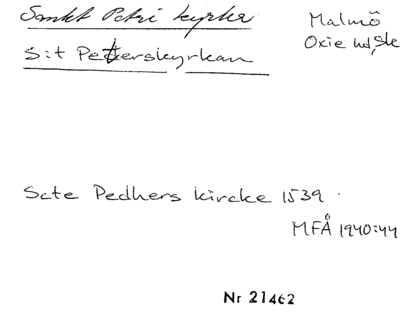 Sankt Petri kyrka
Malmö
Oxie hd, Sk
S:t Petterskyrkan
Scte Pedhers kircke 1539.
MFÅ 1940:44
Nr 21462